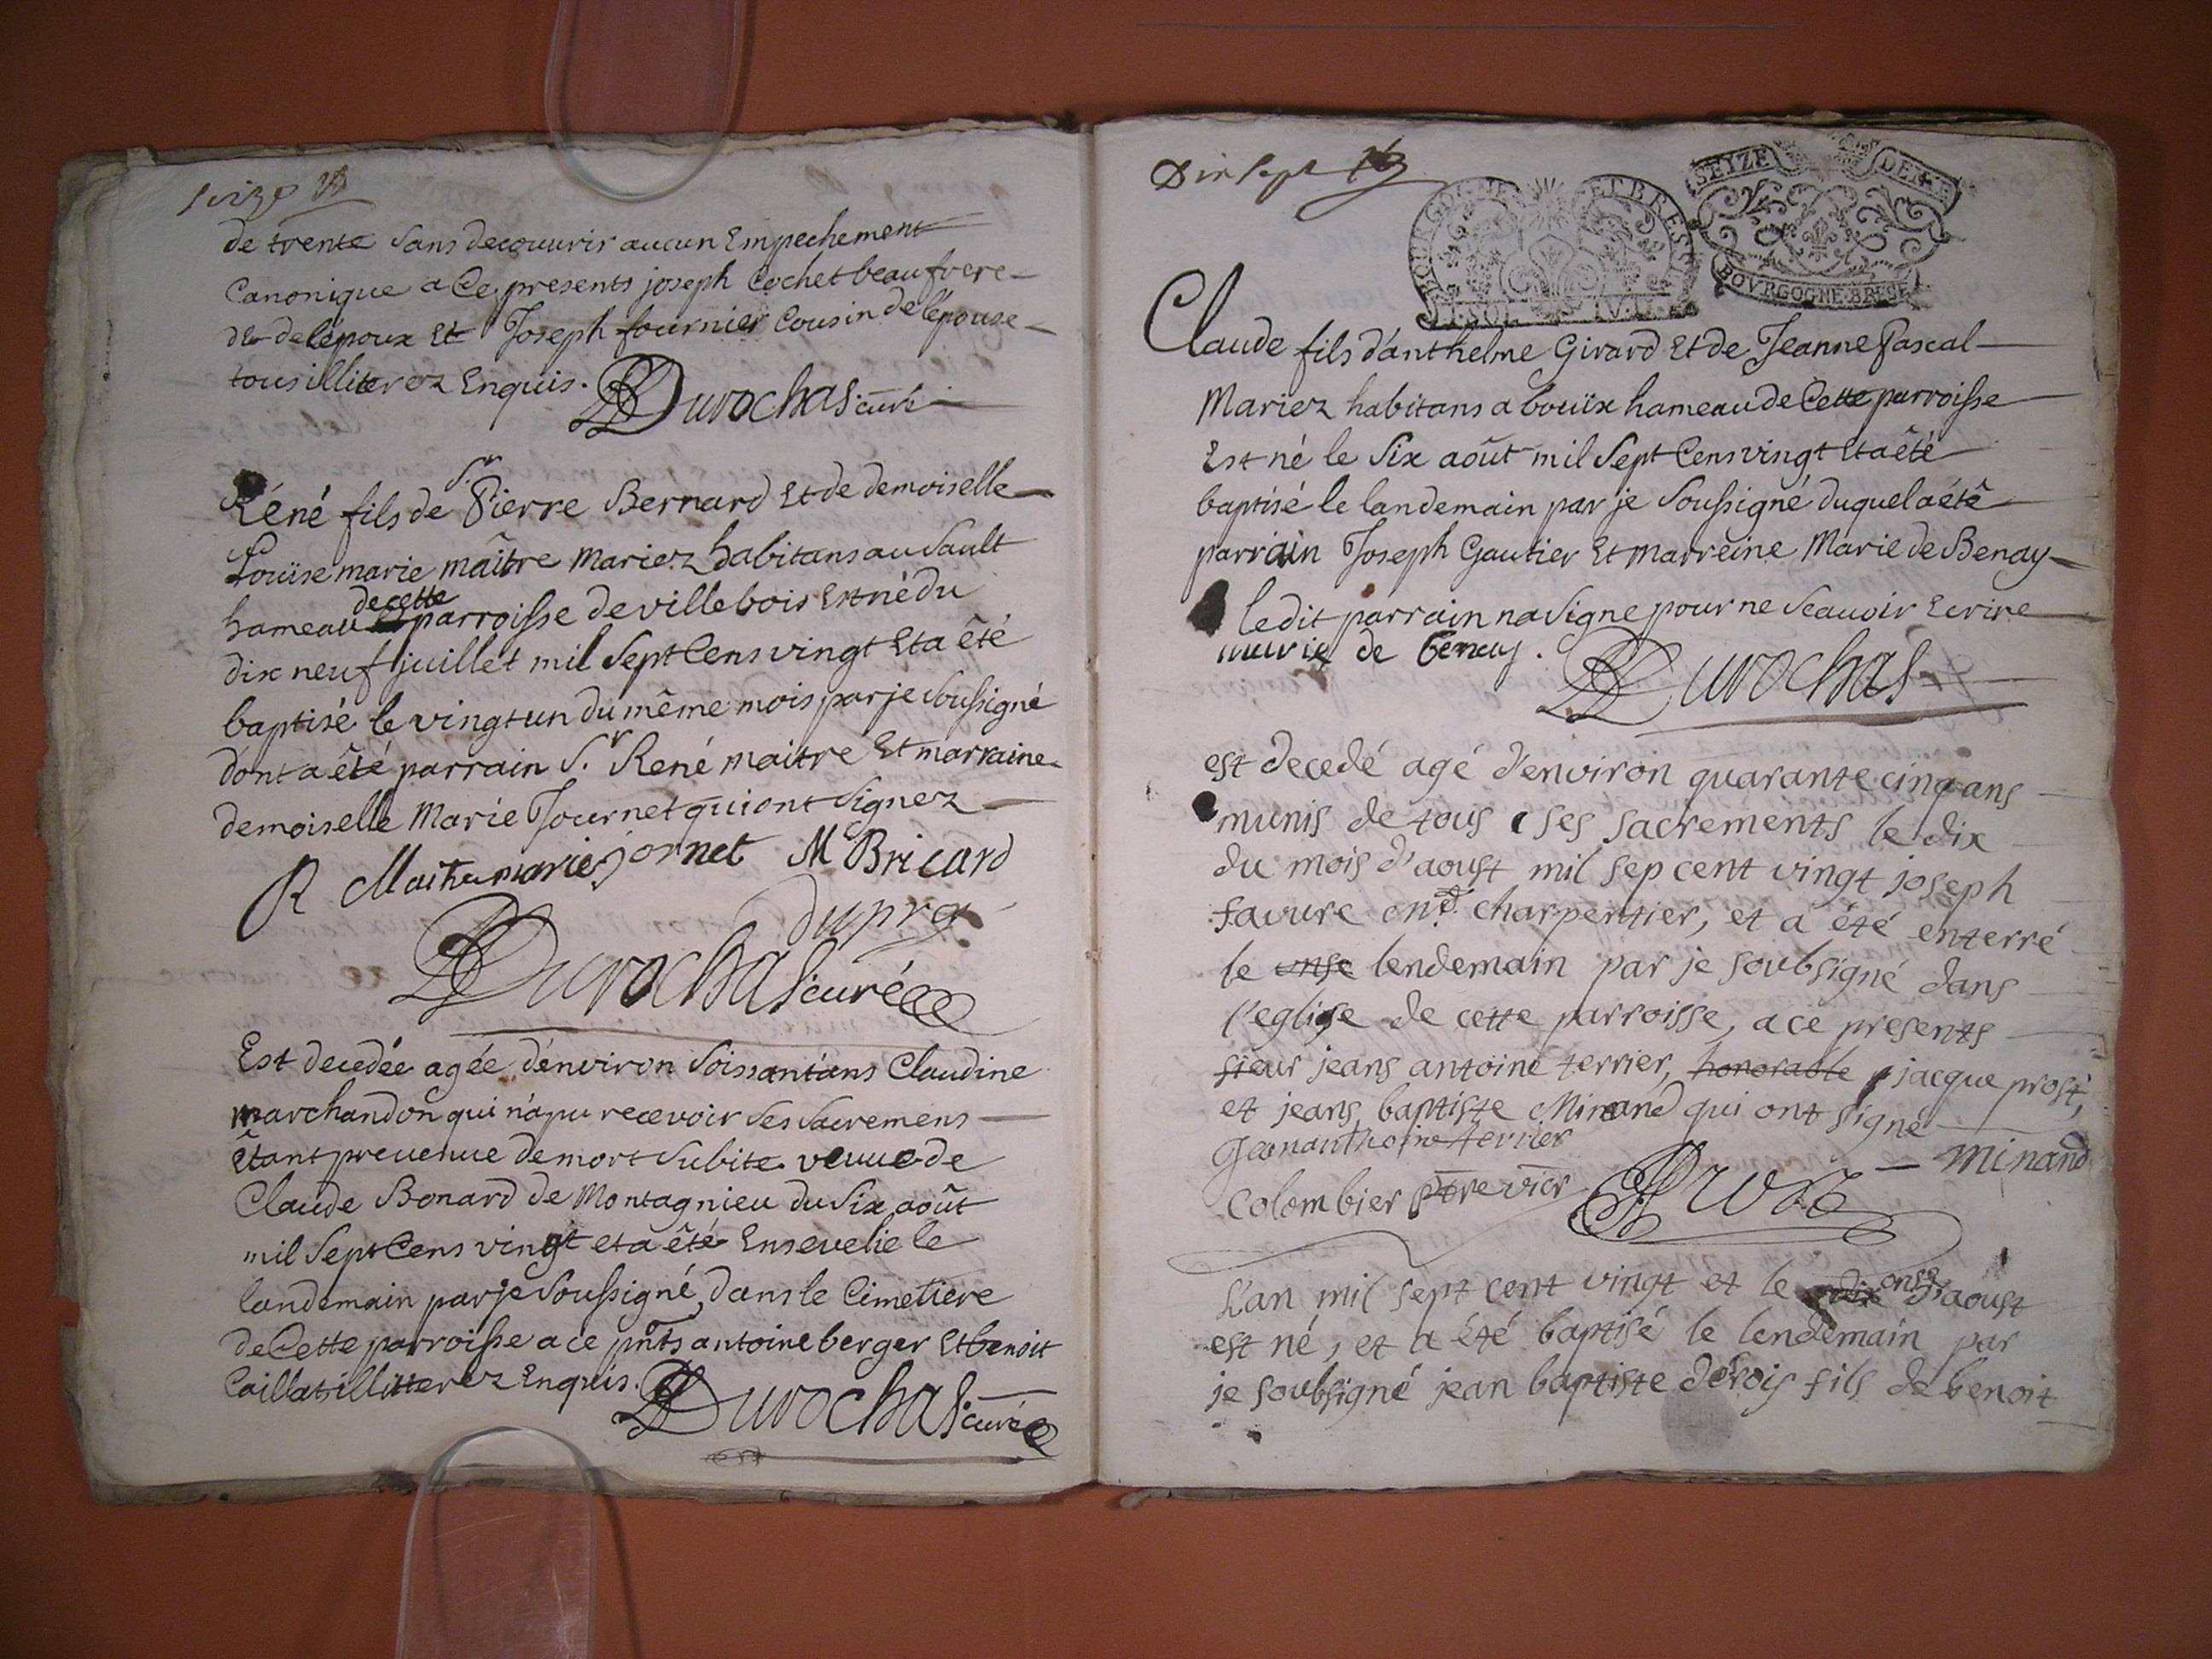 seize
de trente sans decouurir aucun Empechement
Canonique a Ce presents joseph Cochet beaufrere
de delépoux Et Joseph fournier Cousin de lépouse
tous illiterez Enquis. Durochas curé
Réné fils de Sr Pierre Bernard Et de demoiselle
Loüise marie maître Mariez habitans au Sault
hameau de cette parroisse de villebois Est né du
dix neuf juillet mil Sept Cens vingt Et a êté
baptisé le vingt un du même mois par je Soussigné
dont a êté parrain Sr René maitre Et marraine
demoiselle Marie Journet qui ont Signez
R Maitre marie jornet M Bricard
dupré
Durochas curé
Est decedée agée d'environ Soissant'ans Claudine
marchandon qui n'a pu recevoir Ses Sacremens
êtant preuenue de mort Subite veuue de
Claude Bonard de Montagnieu du Six août
mil Sept Cens vingt et a êté Ensevelie le
landemain par je Soussigné dans le Cimetiere
de Cette parroisse a ce pnts antoine berger Et benoit
Caillat illitterez Enquis. Durochas curé
Dix sept
BOURGOGNE ET BRESSE
SEIZE DEN
BOVRGOGNE BRESSE
Claude fils d'anthelme Girard Et de Jeanne Pascal
Mariez habitans a bouïx hameau de Cette parroisse
Est né le Six août mil Sept Cens vingt Et a êté
baptisé le landemain par je Soussigné duquel a été
parrain Joseph Gautier Et marreine Marie de Benay
le dit parrain na Signe pour ne Scauoir Ecrire
marie de benay. Durochas
est decedé agé d'environ quarante cinq ans
munis de tous ses sacrements le dix
du mois d'aoust mil sep cent vingt joseph
favure charpentier, et a été enterré
le onse lendemain par je soubsigné dans
l'eglise de cette parroisse, a ce presents
sieur jeans antoine terrier, honorable jacque prost,
et jeans baptiste Minand qui ont signé
Jeananthoine terrier minand
Colombier ptre vicr Prost
L'an mil sept cent vingt et le dix onse d'aoust
est né, et a été baptisé le lendemain par
je soubsigné jean baptiste derois fils de benoit